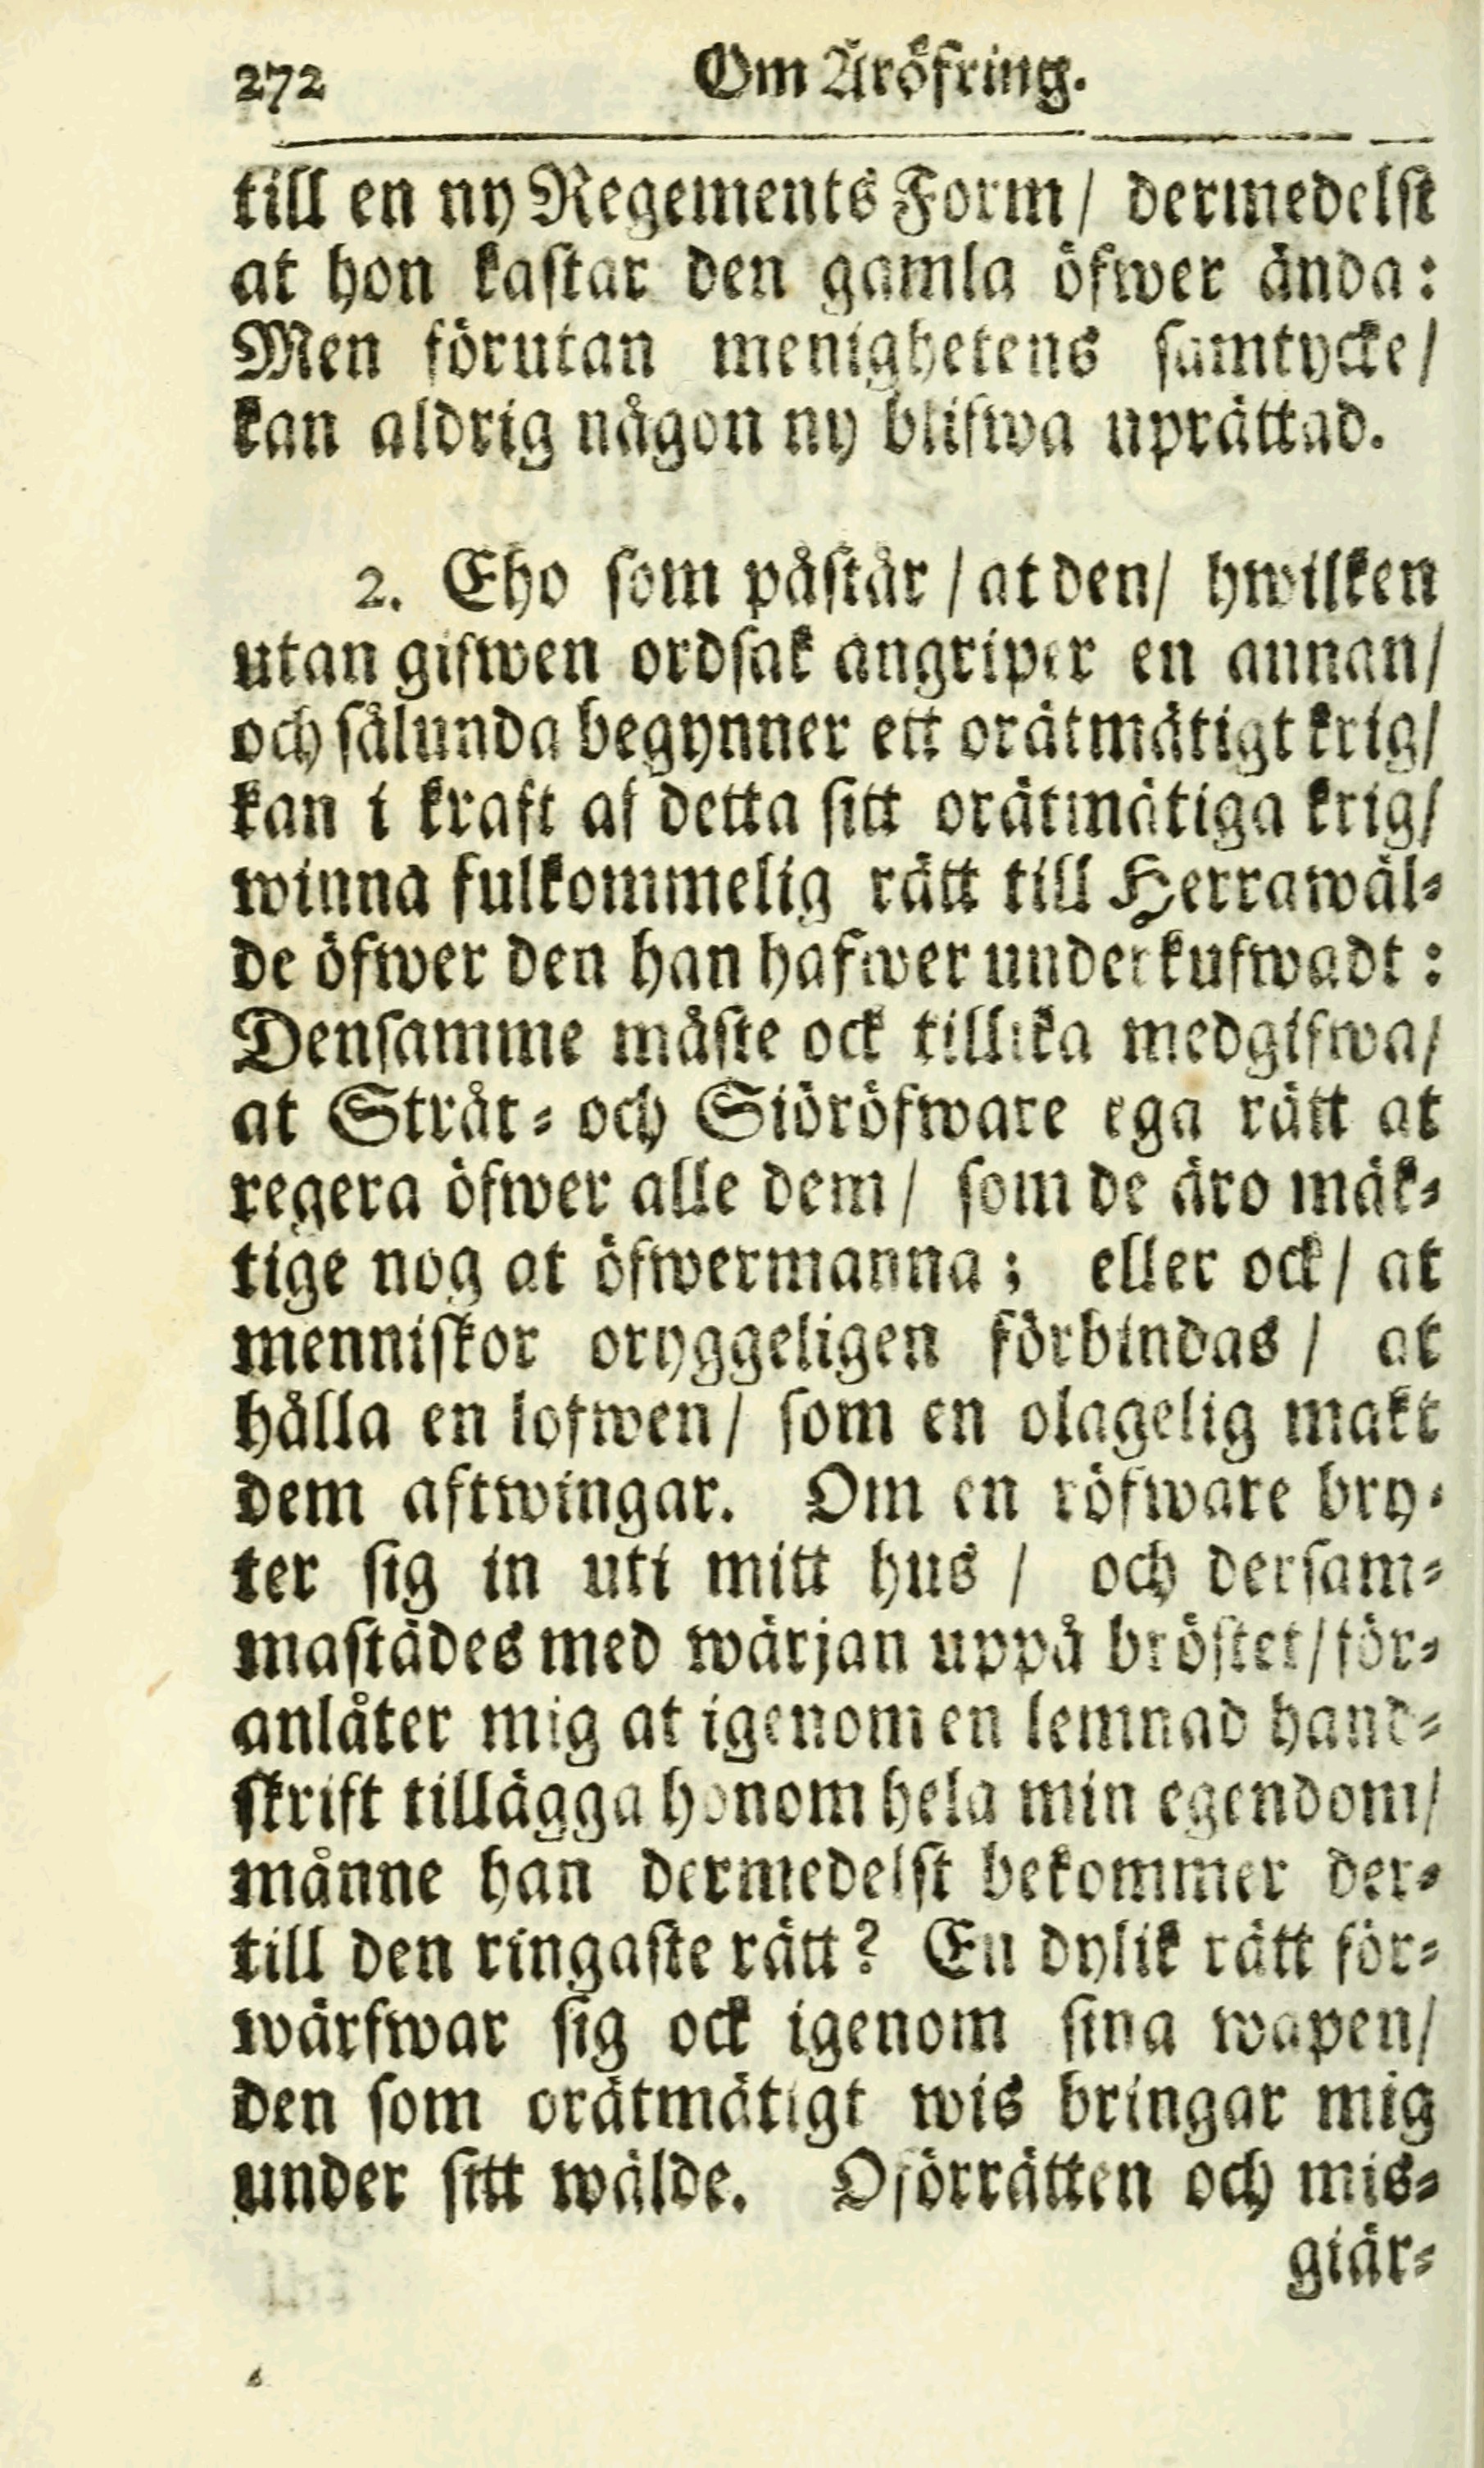 272 Om Äröfring.
till en ny Regements Form / dermedelst
at hon kastar den gamla öfwer ända:
Men förutan menighetens samtycke /
kan aldrig någon ny blifwa uprättad.
2. Eho som påstår / at den / hwilken
utan gifwen ordsak angriper en annan /
och sålunda begynner ett orätmätigt krig /
kan i kraft af detta sitt orätmätiga krig /
winna fulkommelig rätt till Herrawäl-
de öfwer den han hafwer underkufwadt:
Densamme måste ock tillika medgifwa /
at Stråt- och Siöröfware ega rätt at
regera öfwer alle dem / som de äro mäk-
tige nog at öfwermanna; eller ock / at
menniskor oryggeligen förbindas / at
hålla en lofwen / som en olagelig makt
dem aftwingar. Om en röfware bry-
ter sig in uti mitt hus / och dersam-
mastädes med wärjan uppå bröstet / för-
anlåter mig at igenom en lemnad hand-
skrift tillägga honom hela min egendom /
månne han dermedelst bekommer der-
till den ringaste rätt? En dylik rätt för-
wärfwar sig ock igenom sina wapen /
den som orätmätigt wis bringar mig
under sitt wälde. Oförrätten och mis-
giär-